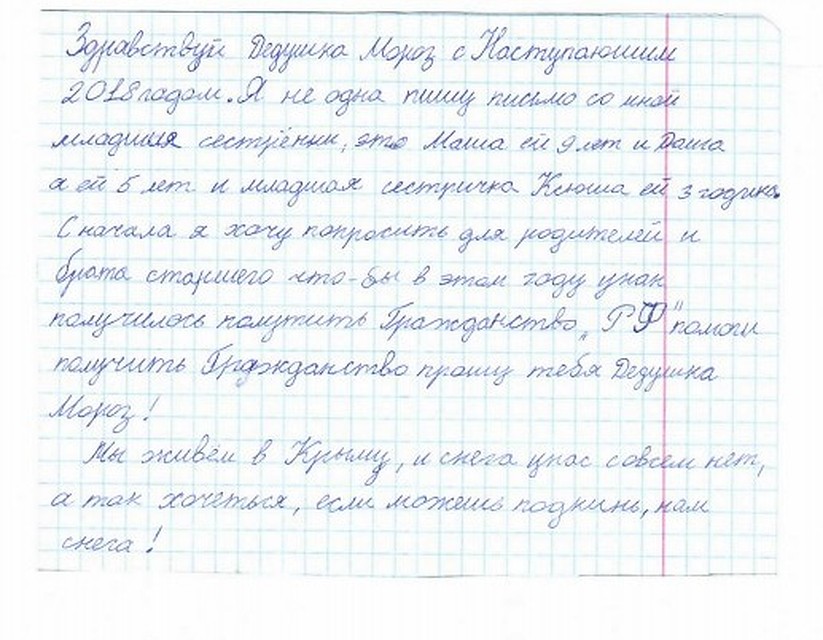 Здравствуй Дедушка Мороз с Наступающим
2018 годом. Я не одна пишу письмо со мной
младшия сестрёнки, это Маша ей 9 лет и Даша
а ей 5 лет и младшая сестричка Ксюша ей 3 годика.
Сначала я хочу попросить для родителей и
брата старшего что-бы в этом году унак
получилось получить Гражданство „РФ" помоги
получить Гражданство прошу тебя Дедушка
Мороз!
Мы живём в Крыму, и снега унас совсем нет,
а так хочеться, если можешь подкинь, нам
снега!